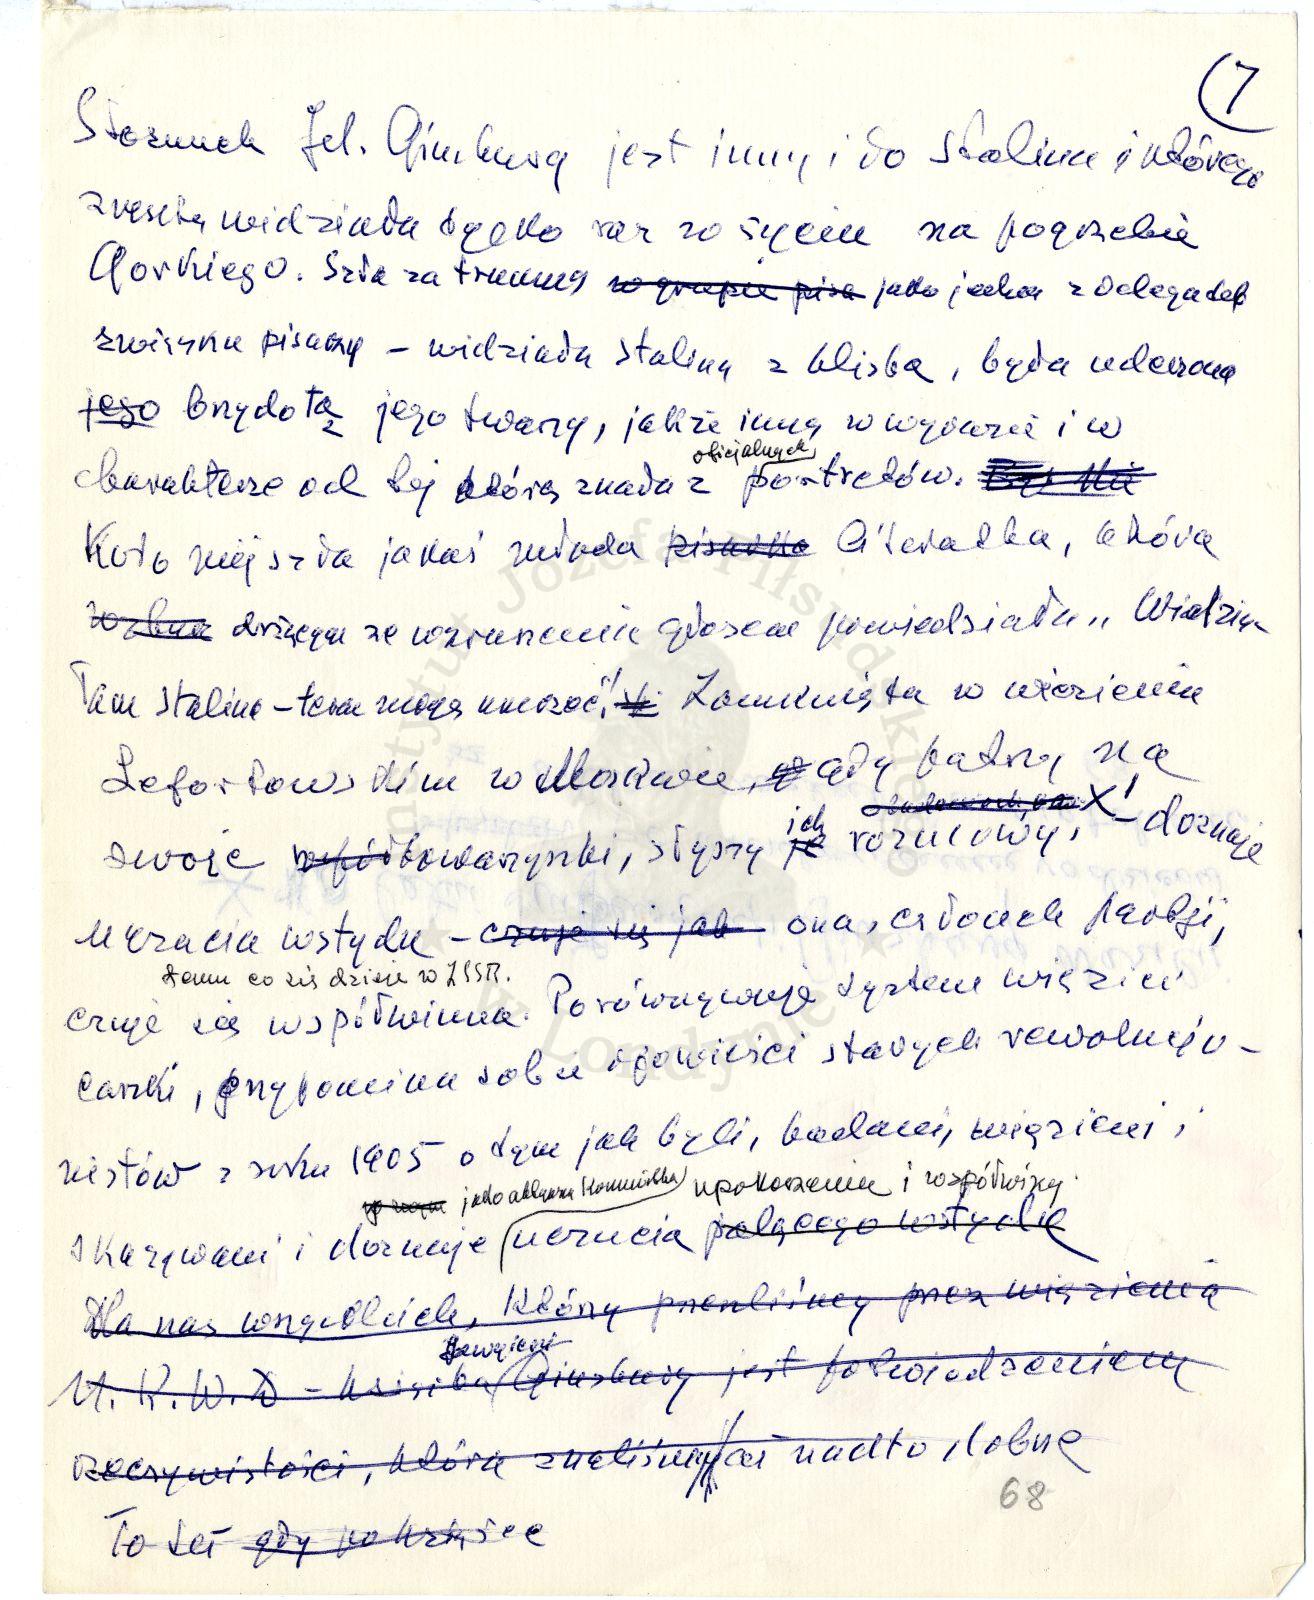 7
Stosunek Jel. Ginzburg jest inny i do Stalina i którego
zresztą widziała tylko raz w życiu na pogrzebie
Gorkiego. Szła za trumną w grupie pisa jako jedna z delegatek
związku pisarzy – widziała Stalina z bliska, była uderzona
jego brzydotą jego twarzy, jakże inną w wyrazie i w
oficjalnych
charakterze od tej którą znała z portretów.
Koło niej szła jakaś młoda pisarka literatka, która
drżącym ze wzruszenia głosem powiedziała „Widzia-
łam Stalina – teraz mogę umrzeć"! Zamknięta w więzieniu
Lefortowskim w Moskwie, gdy patrzy na
ich X
swoje współtowarzyszki, słyszy je rozmowy, – doznaje
uczucia wstydu – czuje się jak ona, członek partji,
temu co się dzieje w ZSSR.
czuje się współwinna. Porównywuje system więzień
carski, przypomina sobie opowieści starych rewolucjo-
nistów z roku 1905 o tym jak byli, badani, więzieni i
jako aktywna komunistka upokorzenia i współwiny.
skazywani i doznaje uczucia palącego wstydu
Dla nas wszystkich, którzy przeszliśmy przez więzienia
Eugenii
N.K.W.D – książka Ginzburg jest potwierdzeniem
rzeczywistości, którą znaliśmy aż nadto dobrze
To też gdy po książce
68
Instytut Józefa Piłsudskiego
w Londynie